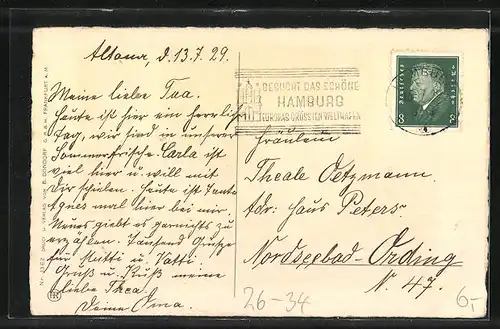 Altona, d. 13.7.29.
Meine liebe Tea.
Heute ist hier ein herrlicher
Tag, wir sind in unserer
Sommerfrische. Carla ist
viel hier u. will mit
Dir schulen. Heute ist Tante
Agnes mal hier bei mir
Neues giebt es garnichts zu
erzählen. Tausend Grüße
für Mutti u. Vatti.
Gruß u. Kuß meine
liebe Thea.
Deine Oma.
BESUCHT DAS SCHÖNE
HAMBURG
Deutsches Reich
8 8
Fräulein
Theale Oetzmann.
Adr: Haus Peters.
Nordseebad-Ording
N. 47.
DRUCK U. VERLAG VON B. DONDORF G.M.B.H. FRANKFURT A. M.
26-34
6,-